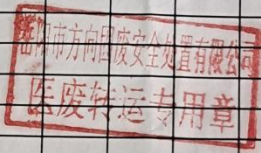 岳阳市方向固废安全处置有限公司
医废转运专用章